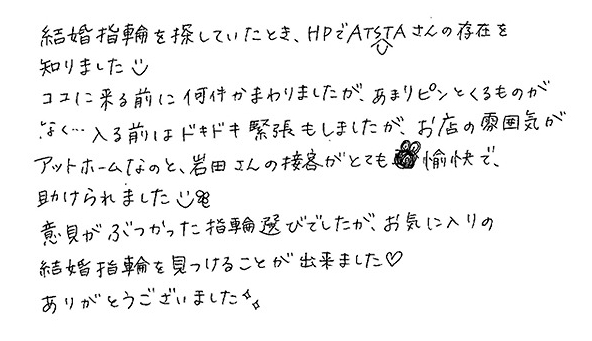 結婚指輪を探していたとき、HPでATSTAさんの存在を
知りました
ココに来る前に何件かまわりましたが、あまりピンとくるものが
なく…入る前はドキドキ緊張もしましたが、お店の雰囲気が
アットホームなのと、岩田さんの接客がとても愉快で、
助けられました
意見がぶつかった指輪選びでしたが、お気に入りの
結婚指輪を見つけることが出来ました♡
ありがとうございました